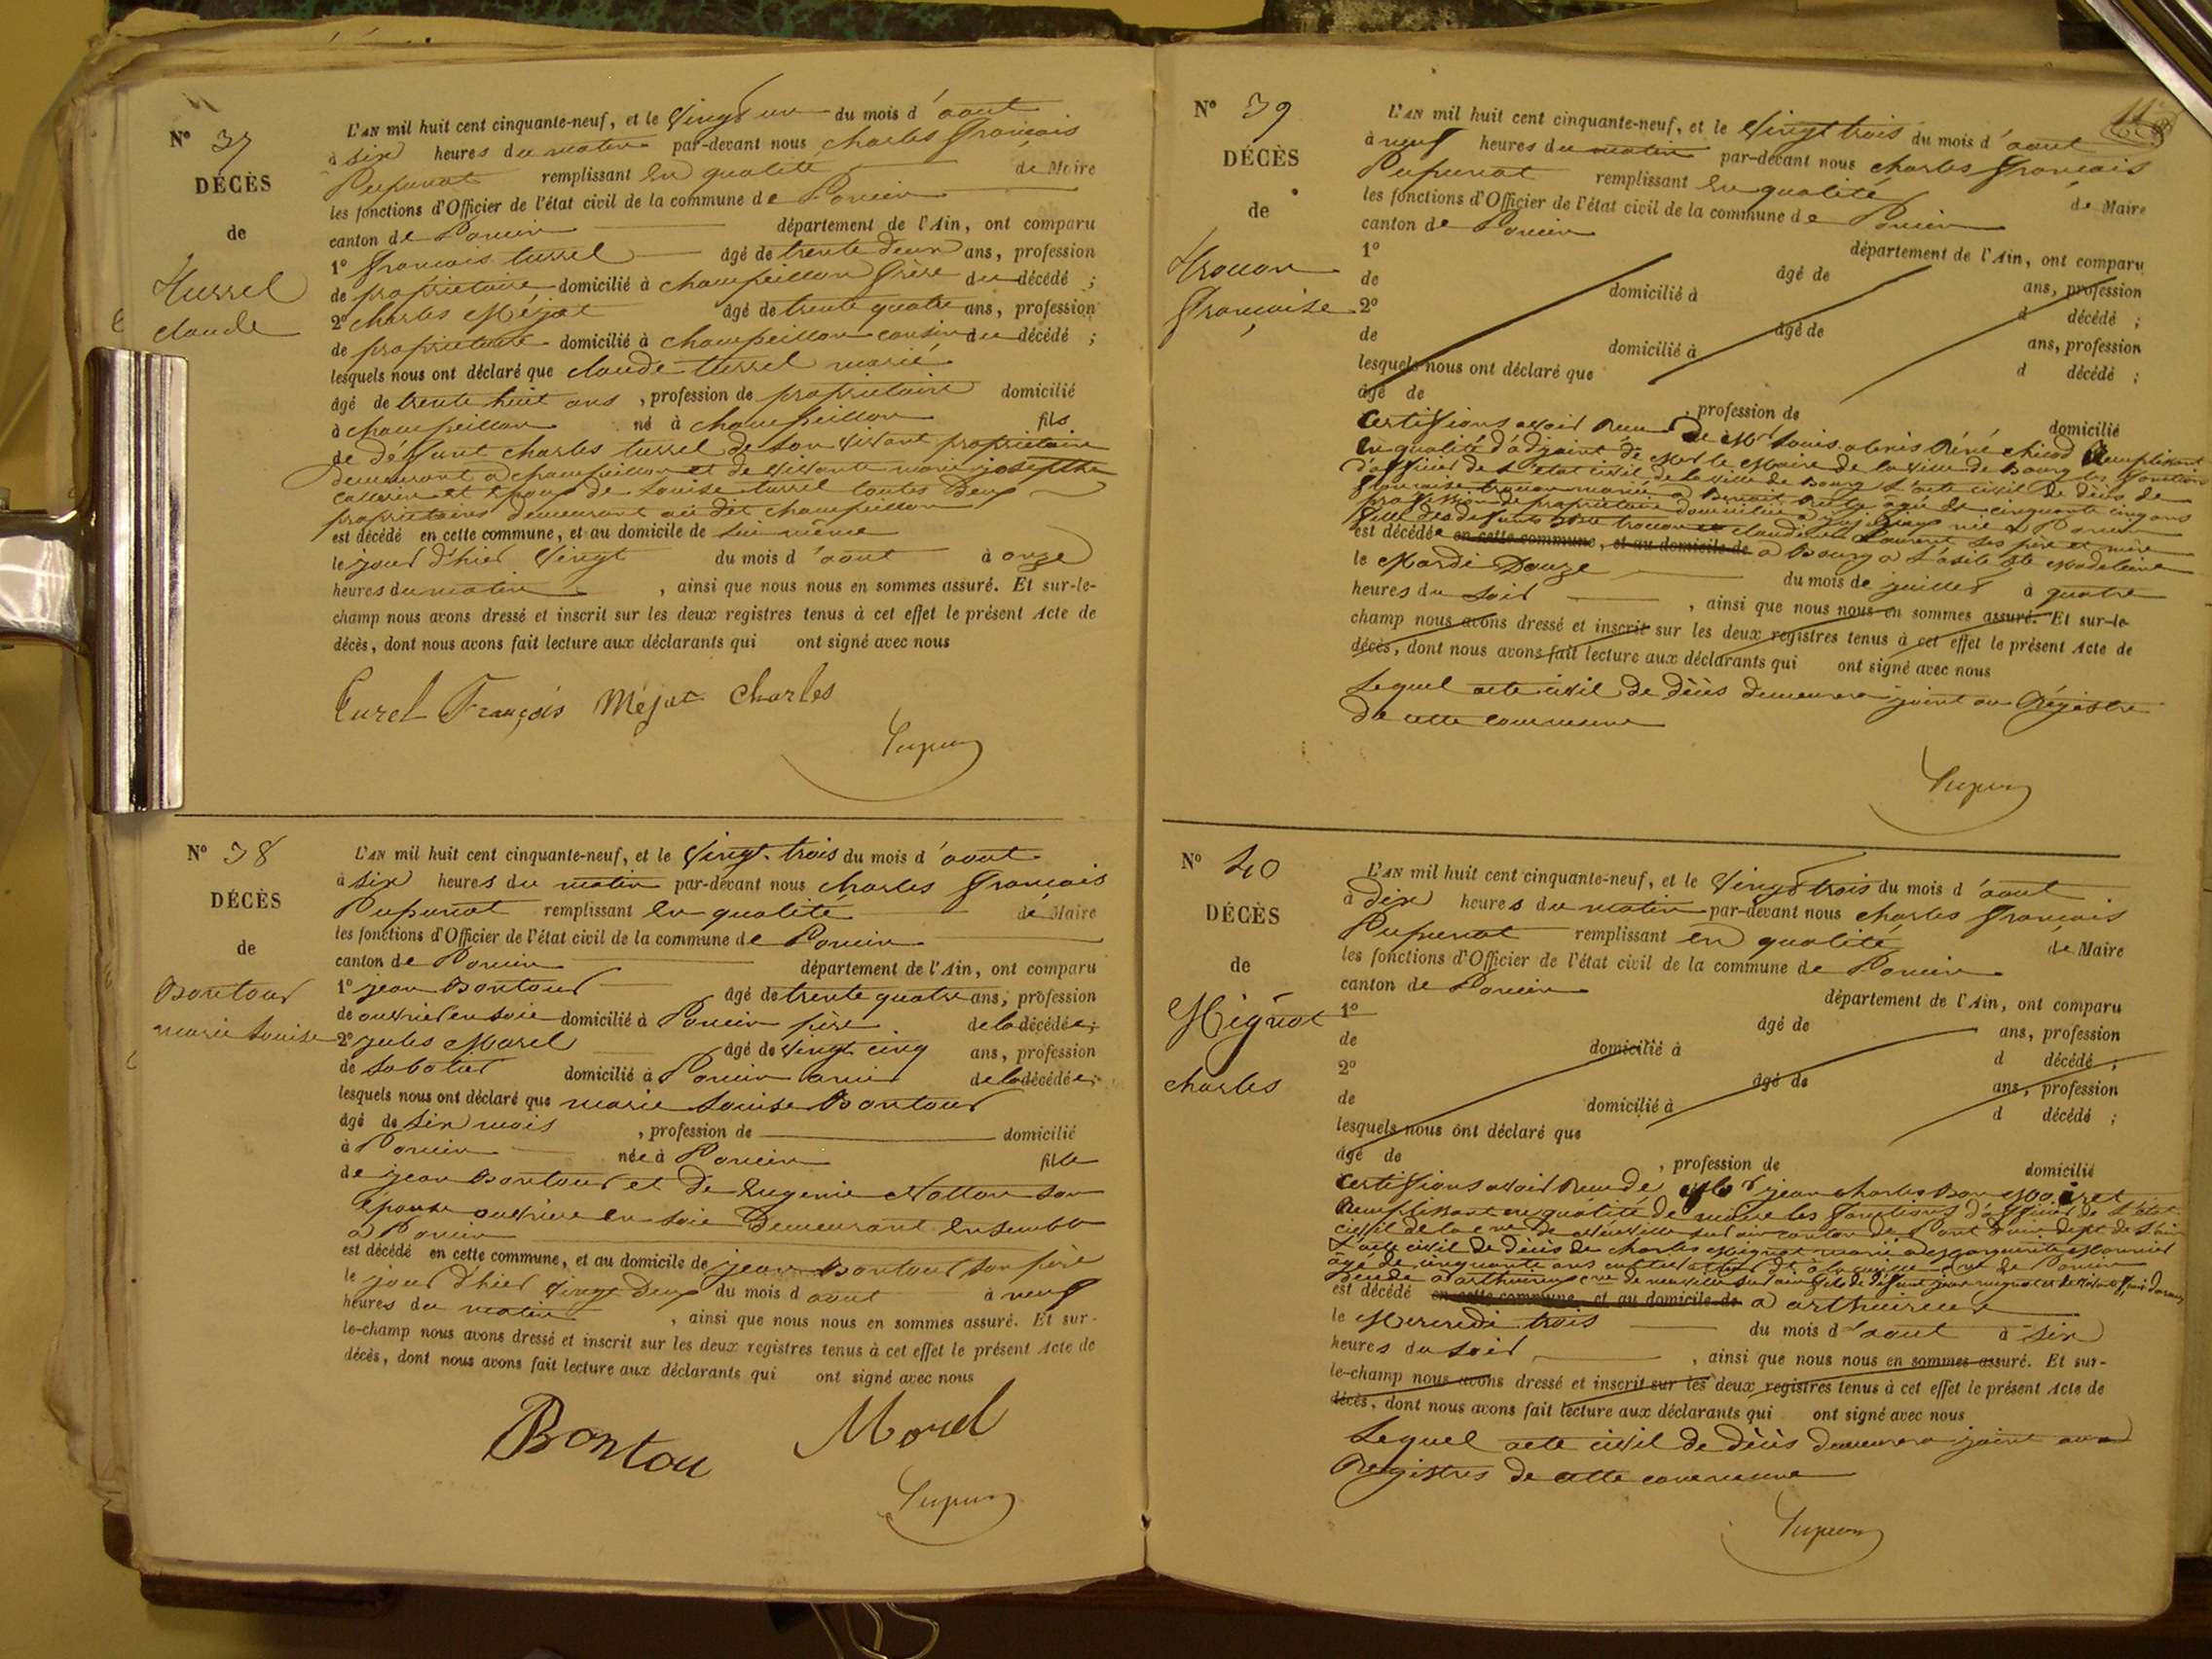 N° 37
DÉCÈS
de
Turrel
claude
L'AN mil huit cent cinquante-neuf, et le vingt un du mois d'aout
à six heures du matin par-devant nous charles françois
Pupunat remplissant en qualité de Maire
les fonctions d'Officier de l'état civil de la commune de Poncin
canton de Poncin département de l'Ain, ont comparu
1° françois turrel âgé de trente deux ans, profession
de propriétaire domicilié à champeillon frère du décédé ;
2° charles Méjat âgé de trente quatre ans, profession
de propriétaire domicilié à champeillon cousin du décédé ;
lesquels nous ont déclaré que claude turrel marié
âgé de trente huit ans , profession de propriétaire domicilié
à champeillon né à champeillon fils
de déffunt charles turrel de son vivant propriétaire
demeurant à champeillon et de vivante marie josephte
et époux de Louise turrel toutes deux
propriétaires demeurant au dit champeillon
est décédé en cette commune, et au domicile de lui même
le jour d'hier vingt du mois d'aout à onze
heures du matin , ainsi que nous nous en sommes assuré. Et sur-le-
champ nous avons dressé et inscrit sur les deux registres tenus à cet effet le présent Acte de
décès, dont nous avons fait lecture aux déclarants qui ont signé avec nous
Turel François Mejat charles
N° 38
DÉCÈS
de
Bontour
marie Louise
L'AN mil huit cent cinquante-neuf, et le vingt-trois du mois d'aout
à six heures du matin par-devant nous charles françois
Pupunat remplissant en qualité de Maire
les fonctions d'Officier de l'état civil de la commune de Poncin
canton de Poncin département de l'Ain, ont comparu
1° jean Bontour âgé de trente quatre ans, profession
de ouvrier en soie domicilié à Poncin père de la décédée ;
2° jules Morel âgé de vingt cinq ans, profession
de sabotier domicilié à Poncin ami de la décédée ;
lesquels nous ont déclaré que marie Louise Bontour
âgé de six mois , profession de domicilié
à Poncin née à Poncin fille
de jean Bontour et de Eugenie Notton son
épouse ouvrière en soie demeurant ensemble
à Poncin
est décédé en cette commune, et au domicile de jean Bontour son père
le jour d'hier vingt deux du mois d aout à neuf
heures du matin , ainsi que nous nous en sommes assuré. Et sur-
le-champ nous avons dressé et inscrit sur les deux registres tenus à cet effet le présent Acte de
décès, dont nous avons fait lecture aux déclarants qui ont signé avec nous
Bontou Morel
N° 39
DÉCÈS
de
Trouon
françoise
L'AN mil huit cent cinquante-neuf, et le vingt trois du mois d'aout
à neuf heures du matin par-devant nous charles françois
Pupunat remplissant en qualité de Maire
les fonctions d'Officier de l'état civil de la commune de Poncin
canton de Poncin département de l'Ain, ont comparu
1° âgé de ans, profession
de domicilié à d décédé ;
2° âgé de ans, profession
de domicilié à d décédé ;
lesquels nous ont déclaré que
âgé de , profession de domicilié
certifions avoir reçu de Mr Louis Réné remplissant
en qualité d'adjoint de Mr le Maire de la ville de Bourg les fonctions
d'officier de l'état civil de la ville de Bourg l'acte civil de décès de
françoise trouon mariée à Benoit âgée de cinquante cinq ans
profession de propriétaire domiciliée à née à Poncin
fille des defunts trouon et claudine Laurent ses père et mère
est décédée en cette commune, et au domicile de à Bourg à l'asile Ste Madeleine
le Mardi Douze du mois de juillet à quatre
heures du soir , ainsi que nous nous en sommes assuré. Et sur-le
champ nous avons dressé et inscrit sur les deux registres tenus à cet effet le présent Acte de
décès, dont nous avons fait lecture aux déclarants qui ont signé avec nous
Lequel acte civil de décès demeurera joint au Régistre
de cette commune
N° 40
DÉCÈS
de
Mignot
charles
L'AN mil huit cent cinquante-neuf, et le vingt trois du mois d'aout
à dix heures du matin par-devant nous charles françois
Pupunat remplissant en qualité de Maire
les fonctions d'Officier de l'état civil de la commune de Poncin
canton de Poncin département de l'Ain, ont comparu
1° âgé de ans, profession
de domicilié à d décédé ;
2° âgé de ans, profession
de domicilié à d décédé ;
lesquels nous ont déclaré que
âgé de , profession de domicilié
certifions avoir reçu de Mr jean charles
Remplissant en qualité de maire les fonctions d'officier de l'état
civil de la cne de Neuville sur ain canton de Pont d'ain dept de l'ain
L'acte civil de décès de charles Mignot marié à Marguerite Monnier
âgé de cinquante ans cultivateur cne de Poncin
décédé à arthuireux cne de neuville sur ain fils de défunt jean mignot et de
est décédé en cette commune, et au domicile de à arthuireux
le Mercredi trois du mois d'aout à six
heures du soir , ainsi que nous nous en sommes assuré. Et sur-
le-champ nous avons dressé et inscrit sur les deux registres tenus à cet effet le présent Acte de
décès, dont nous avons fait lecture aux déclarants qui ont signé avec nous
Lequel acte civil de décès demeurera joint aux
Registres de cette commune